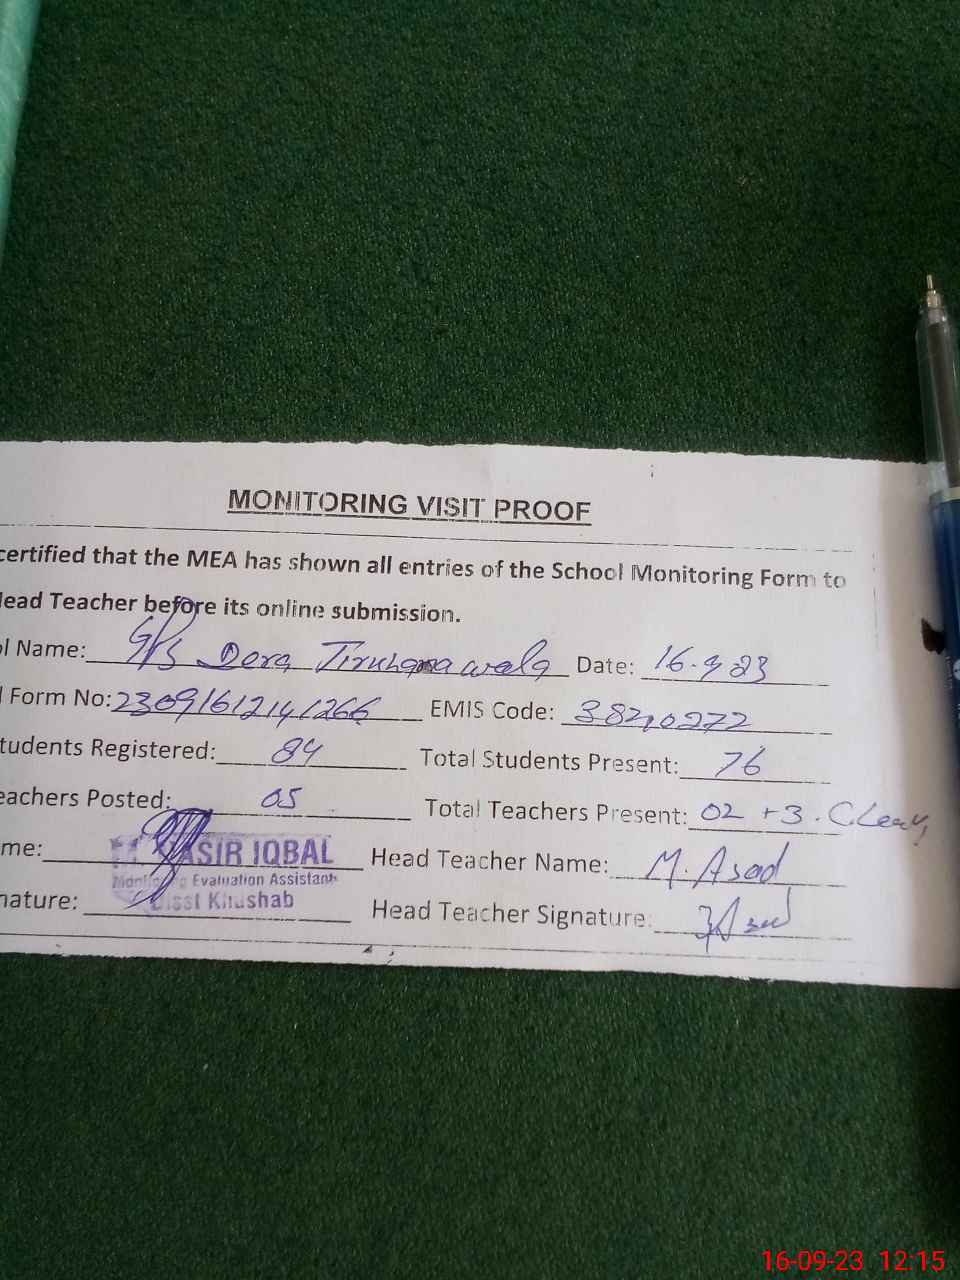 MONITORING VISIT PROOF
certified that the MEA has shown all entries of the School Monitoring Form to
lead Teacher before its online submission.
l Name: GPS Dera Date: 16.9.23
l Form No: 23091612141266 EMIS Code: 38210272
tudents Registered: 84 Total Students Present: 76
eachers Posted: 05 Total Teachers Present: 02 + 3. CLeav,
me: ASIR IQBAL Head Teacher Name: M. Asad
Evaluation Assistant
nature: Disst Khushab Head Teacher Signature:
16-09-23 12:15